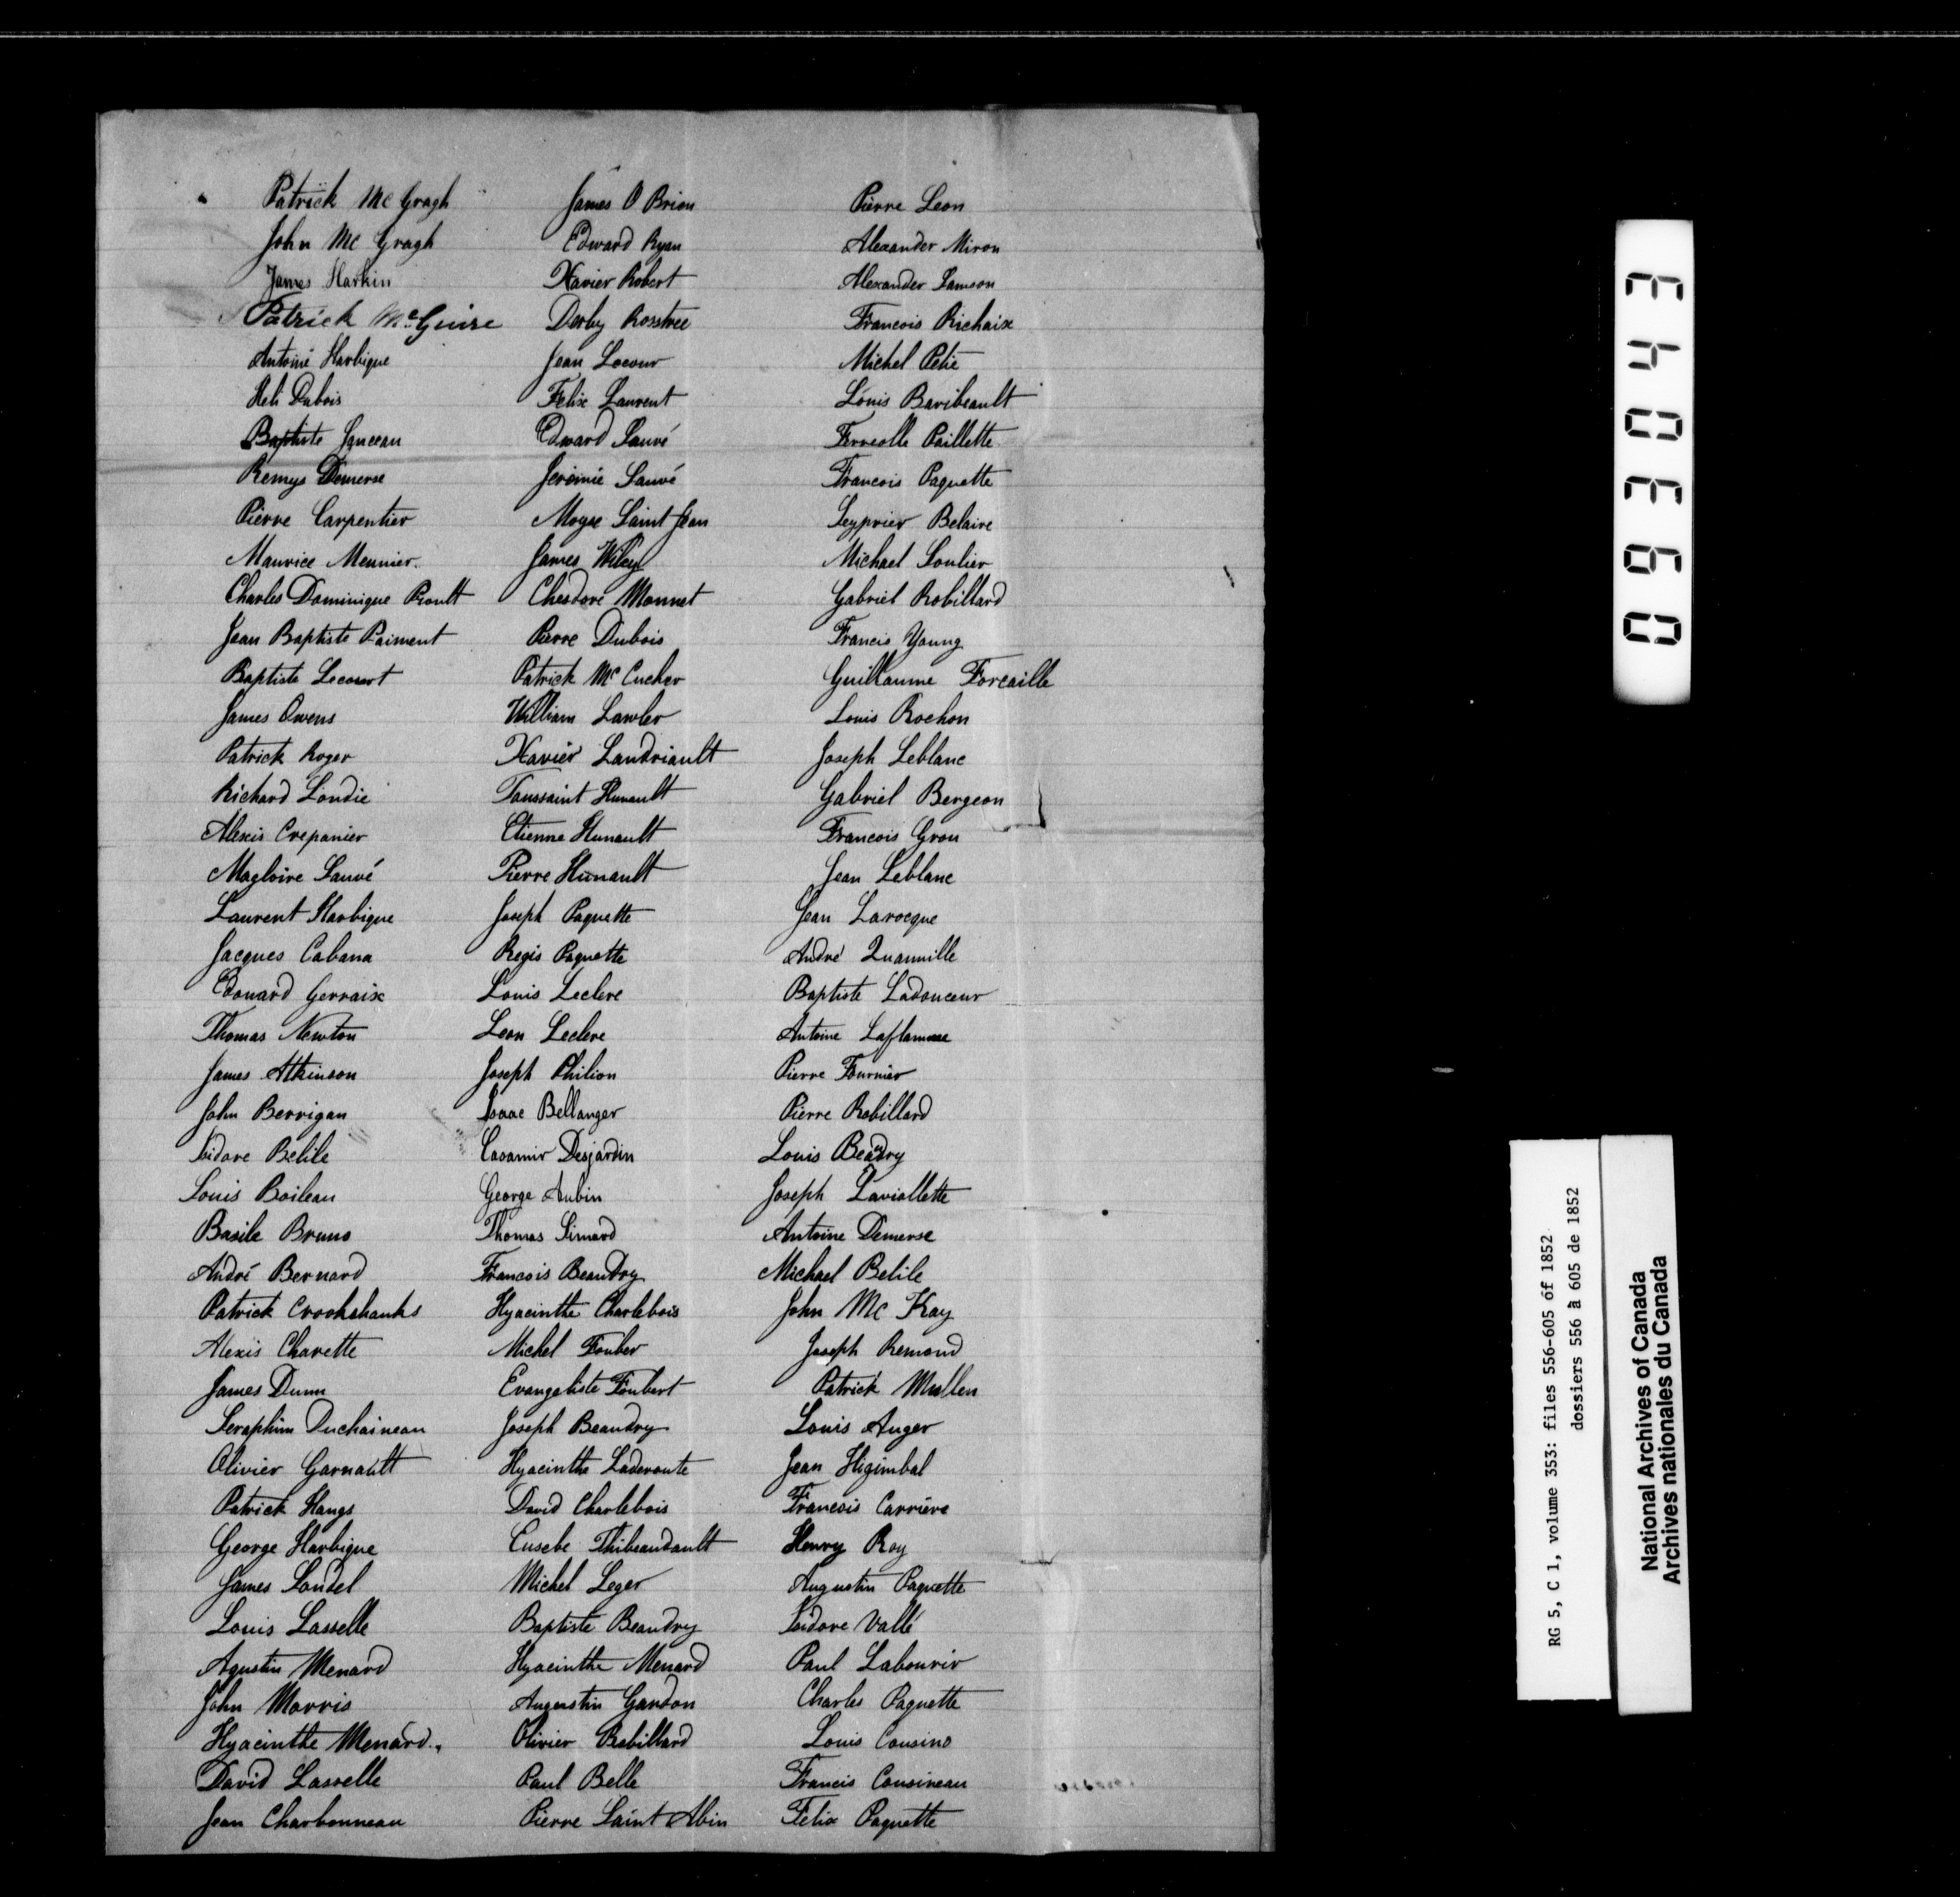 Patrick Mc Gragh James O Brien Pierre Leon
John Mc Gragh Edward Ryan Alexander Miron
James Harkin Xavier Robert Alexander Samson
Patrick McGuire Derby Rosstree Francois Richaix
Antoine Harbique Jean Locour Michel Petie
Heli Dubois Felix Laurent Louis Baribeault
Baptiste Edward Sauvé Ferreolle Paillette
Remys Demerse Jeromie Sauvé Francois Paquette
Pierre Carpentier Moyse Saint Jean Seyprier Belaire
Maurice Meunier. James Wiley Michael Soulier
Charles Dominique Proult Chesdore Monnet Gabriel Robillard
Jean Baptiste Paiment Pierre Dubois Francis Young
Baptiste Lecourt Patrick Mc Cucher Guillaume Forcaille
James Owens William Lawler Louis Rochon
Patrick Roger Xavier Landriault Joseph Leblanc
Richard Londie Toussaint Hunault Gabriel Bergeon
Alexis Crepanier Etienne Hunault Francois Grou
Magloire Sauvé Pierre Hunault Jean Leblanc
Laurent Harbique Joseph Paquette Jean Larocque
Jacques Cabana Regis Paquette André Quanville
Edouard Gervaix Louis Leclere Baptiste Ladouceur
Thomas Newton Leon Leclere Antoine Laflamme
James Atkinson Joseph Philion Pierre Fournier
John Berrigan Isaac Bellanger Pierre Robillard
Isidore Belile Casamir Desjardin Louis Beadry
Louis Boileau George Aubin Joseph Laviollette
Basile Bruno Thomas Simard Antoine Demerse
André Bernard Francois Beaudry Michael Belile
Patrick Crookshanks Hyacinthe Charlebois John Mc Kay
Alexis Charette Michel Fouber Joseph Remond
James Dunn Evangeliste Foubert Patrick Mullen
Seraphim Duchaineau Joseph Beaudry Louis Auger
Olivier Garnault Hyacinthe Laderoute Jean Higimbal
Patrick Hangs David Charlebois Francois Carriere
George Harbique Eusebe Thibeaudault Henry Roy
James Loudel Michel Leger Augustin Paquette
Louis Lasselle Baptiste Beaudry Isidore Vallé
Agustin Menard Hyacinthe Menard Paul Labourir
John Morris Augustin Gandon Charles Paquette
Hyacinthe Menard. Olivier Robillard Louis Cousino
David Lasselle Paul Belle Francis Cousineau
Jean Charbonneau Pierre Saint Abin Felix Paquette
093043
RG 5, C 1, volume 353: files 556-605 of 1852
dossiers 556 à 605 de 1852
National Archives of Canada
Archives nationales du Canada